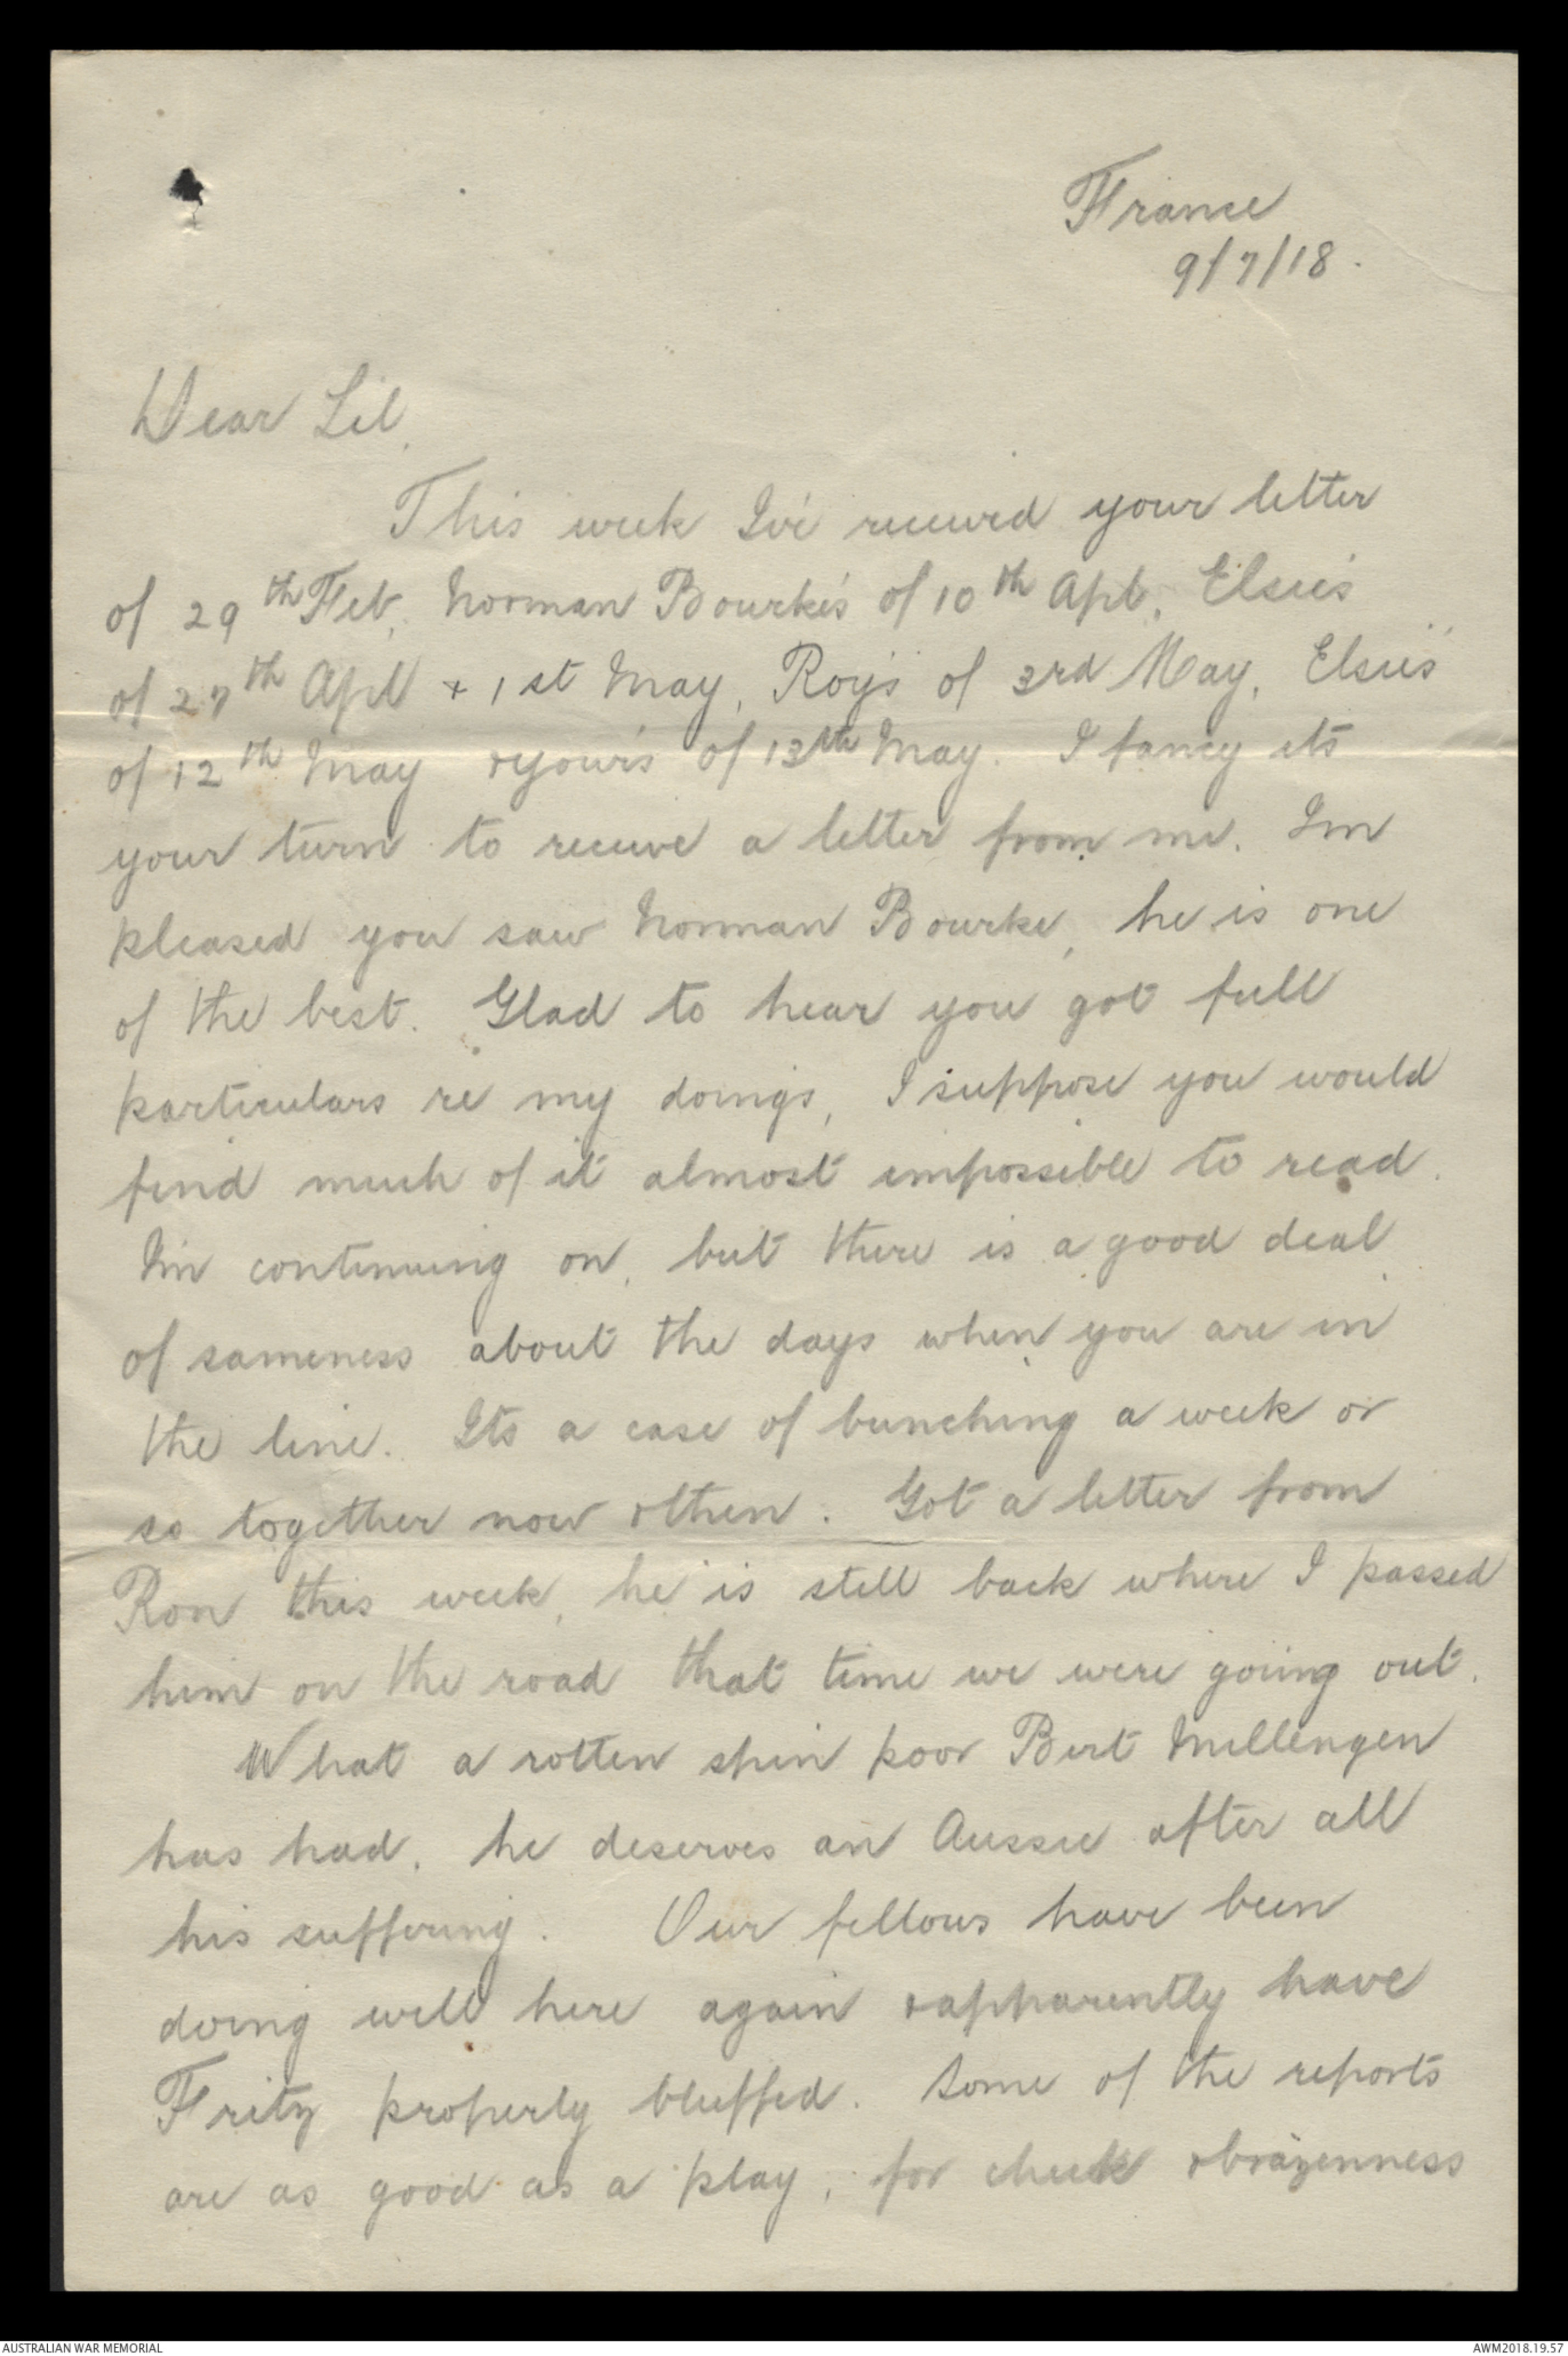 France
9/7/18.
Dear Lil,
This week I've received your letter
of 29th Feb, Norman Bourke's of 10th Apl, Elsie's
of 27th Apl + 1st May, Roy's of 3rd May, Elsie's
of 12th May + your's of 13th May. I fancy its
your turn to receive a letter from me. Im
pleased you saw Norman Bourke, he is one
of the best. Glad to hear you got full
particulars re my doings, I suppose you would
find much of it almost impossible to read.
I'm continuing on, but there is a good deal
of sameness about the days when you are in
the line. Its a case of bunching a week or
so together now + then. Got a letter from
Ron this week, he is still back where I passed
him on the road that time we were going out.
What a rotten spin poor Bert Millengen
has had, he deserves an Aussie after all
his suffering. Our fellows have been
doing well here again + apparently have
Fritz properly bluffed. Some of the reports
are as good as a play, for cheek + brazenness
AUSTRALIAN WAR MEMORIAL
AWM2018.19.57